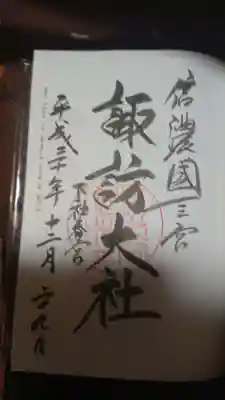 信濃國一宮
諏訪大社
下社春宮
平成三十年十二月二九日